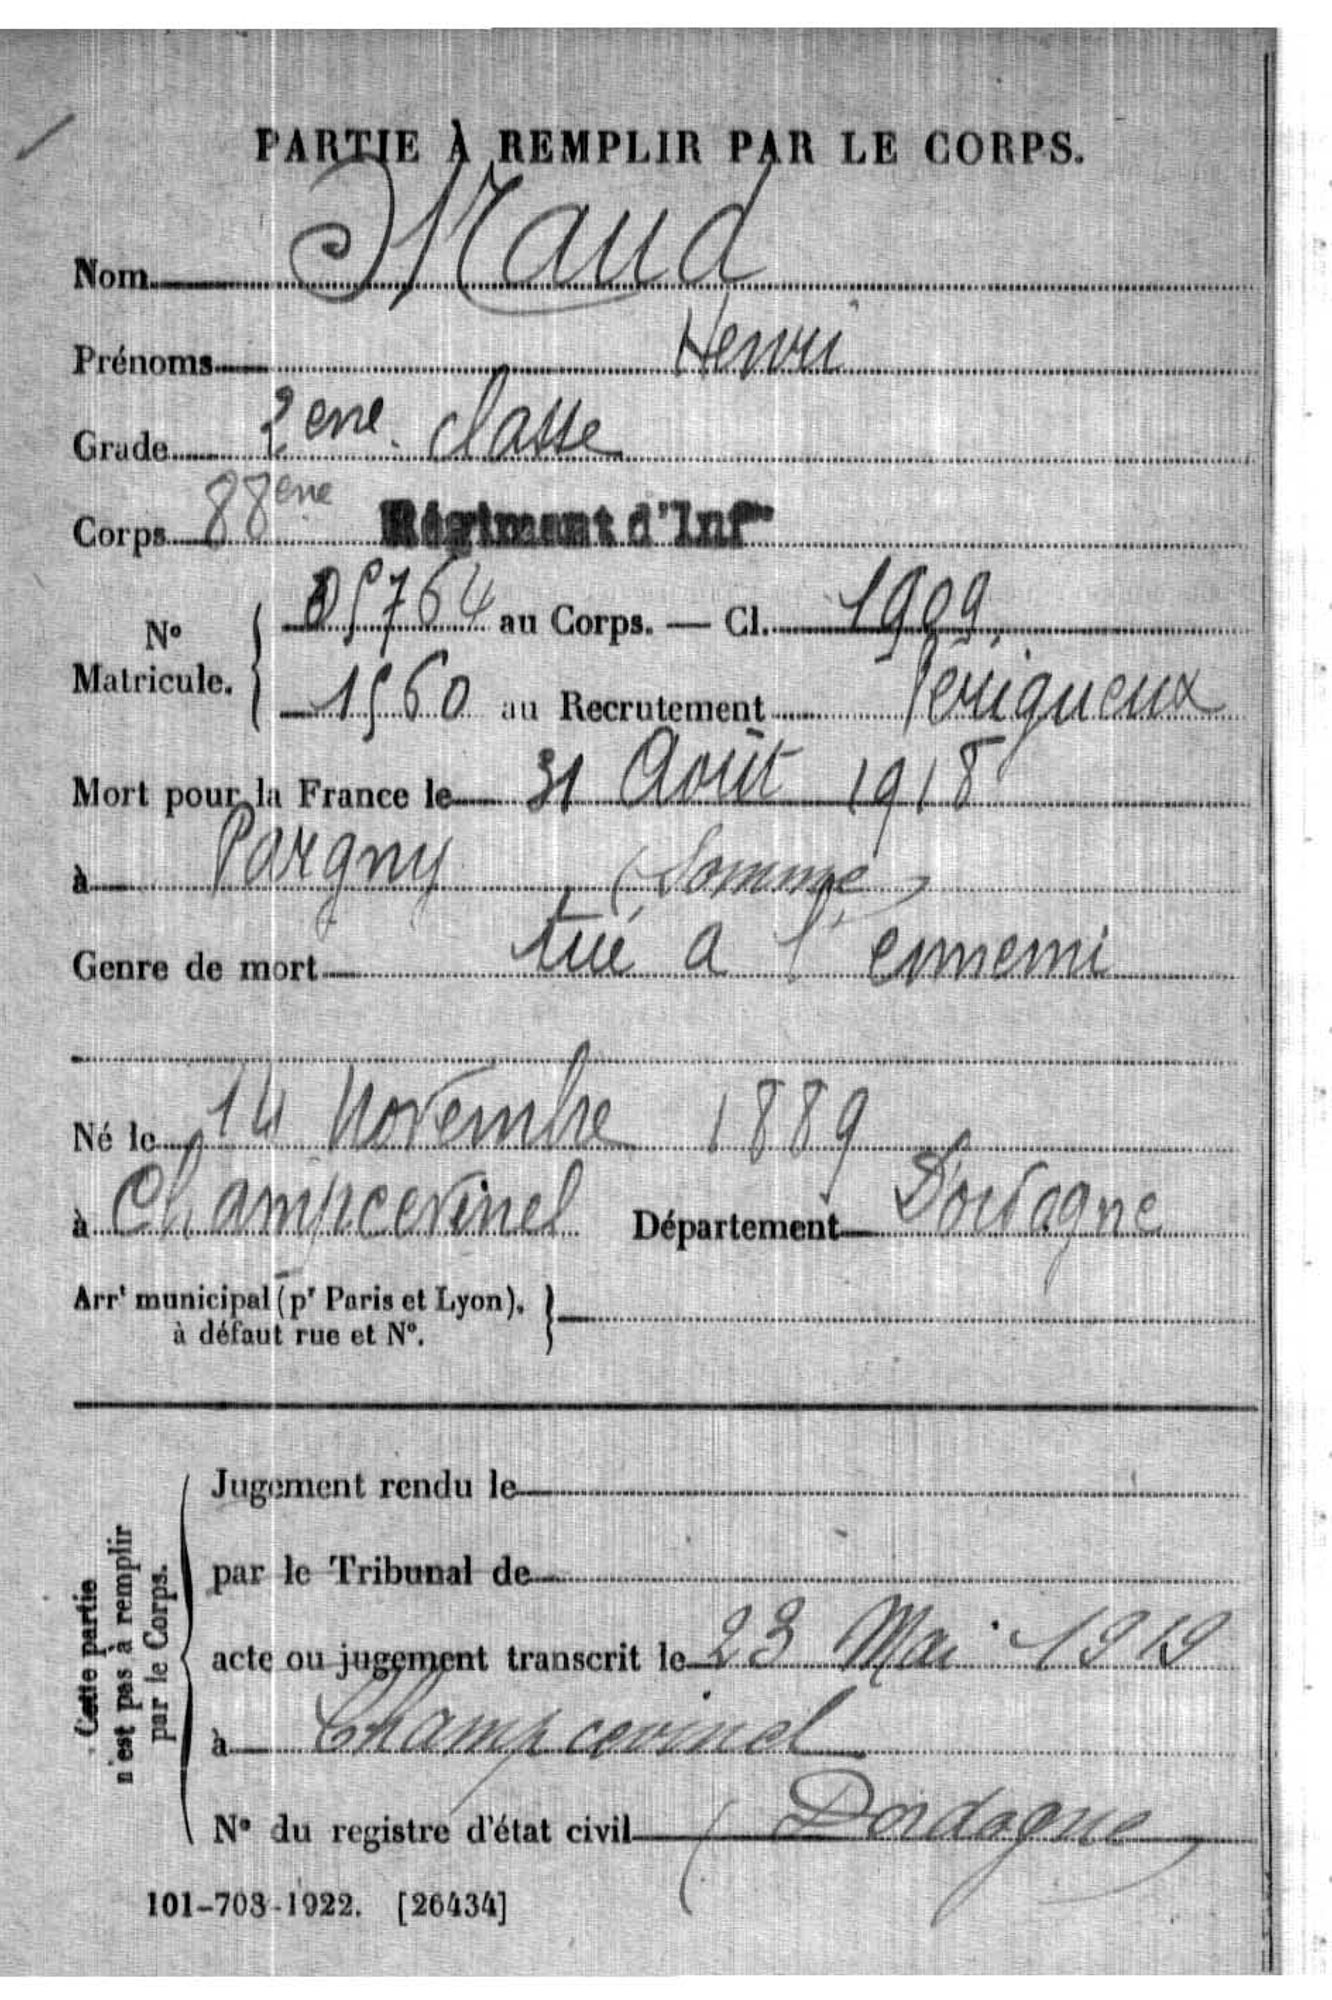 PARTIE À REMPLIR PAR LE CORPS.
Nom
Prénoms Henri
Grade 2ème classe
Corps 88ème Régiment d'Infie
No Matricule. { 05764 au Corps. — Cl. 1909
1560 au Recrutement Périgueux
Mort pour la France le 31 Août 1918
à Pargny (Somme)
Genre de mort tué a l'ennemi
Né le 14 Novembre 1889
à Champcevinel Département Dordogne
Arrt municipal (pr Paris et Lyon), }
à défaut rue et No.
Cette partie
n'est pas à remplir
par le Corps.
Jugement rendu le
par le Tribunal de
acte ou jugement transcrit le 23 Mai 1919
à Champcevinel
No du registre d'état civil (Dordogne)
101-708-1922. [26434]